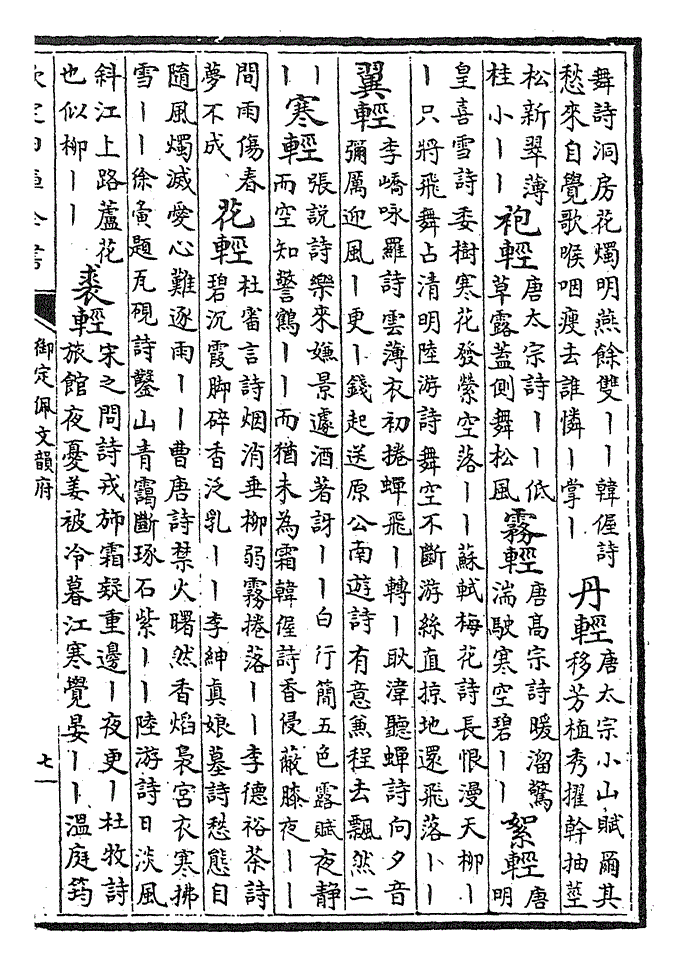 舞詩洞房花燭明燕餘雙丨丨韓偓詩
愁來自覺歌喉咽瘦去誰憐丨掌丨
丹輕
唐太宗小山賦爾其
移芳植秀擢幹抽莖
松新翠薄
桂小丨丨
袍輕
唐太宗詩丨丨低
草露蓋側舞松風
霧輕
唐高宗詩暖溜驚
湍駛寒空碧丨丨
絮輕
唐
明
皇喜雪詩委樹寒花發縈空落丨丨蘇軾梅花詩長恨漫天柳丨
丨只將飛舞占清明陸游詩舞空不斷游絲直掠地還飛落丨丨
翼輕
李嶠咏羅詩雲薄衣初捲蟬飛丨轉丨耿湋聽蟬詩向夕音
彌厲迎風丨更丨錢起送原公南遊詩有意兼程去飄然二
丨
丨
寒輕
張説詩樂來嫌景遽酒著訝丨丨白行簡五色露賦夜静
而空知警鶴丨丨而猶未為霜韓偓詩香侵蔽膝夜丨丨
間雨傷春
夢不成
花輕
杜審言詩烟消垂柳弱霧捲落丨丨李德裕茶詩
碧沉霞脚碎香泛乳丨丨李紳真娘墓詩愁態自
隨風燭滅愛心難逐雨丨丨曹唐詩禁火曙然香焰裊宮衣寒拂
雪丨丨徐夤題瓦硯詩鑿山青靄斷琢石紫丨丨陸游詩日淡風
斜江上路蘆花
也似柳丨丨
裘輕
宋之問詩戎斾霜凝重邊丨夜更丨杜牧詩
旅館夜憂姜被冷暮江寒覺晏丨丨溫庭筠
欽定四庫全書
御定佩文韻府
七